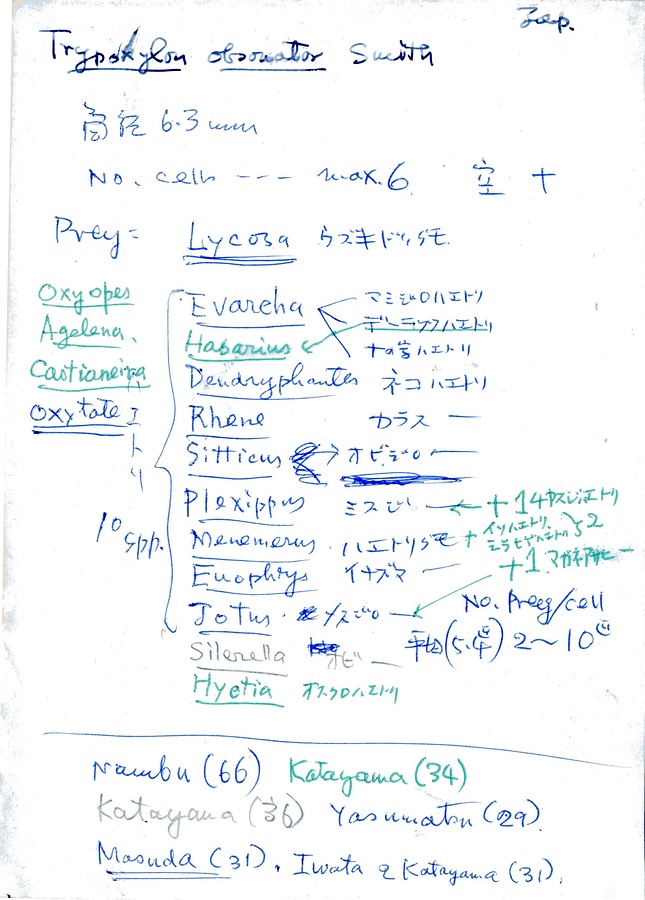 Jap.
Trypoxylon obsonator Smith
筒径 6.3 mm
No. cells --- max. 6 空 +
Prey = Lycosa ウズキドクグモ
Oxyopes
Agelena.
Castianeira
Oxytate エトリ
10 spp.
Evarcha マミジロハエトリ
Hasarius デーラニッツハエトリ
ハエトリ
Dendryphantes ネコハエトリ
Rhene カラス —
Sitticus オビジロ —
Plexippus ミスジ — ← + 14ヤスジハエトリ
Menemerus. ハエトリグモ + イソハエトリ.
2
Euophrys イナズマ — +1. マガネアサヒ —
Jotus. メスジロ —
Silerella オビ —
Hyctia オスクロハエトリ
No. Prey/cell
平均(5.4匹) 2〜10匹
Nambu (66) Katayama (34)
Katayama (36) Yasumatsu (29).
Masuda (31). Iwata & Katayama (31).